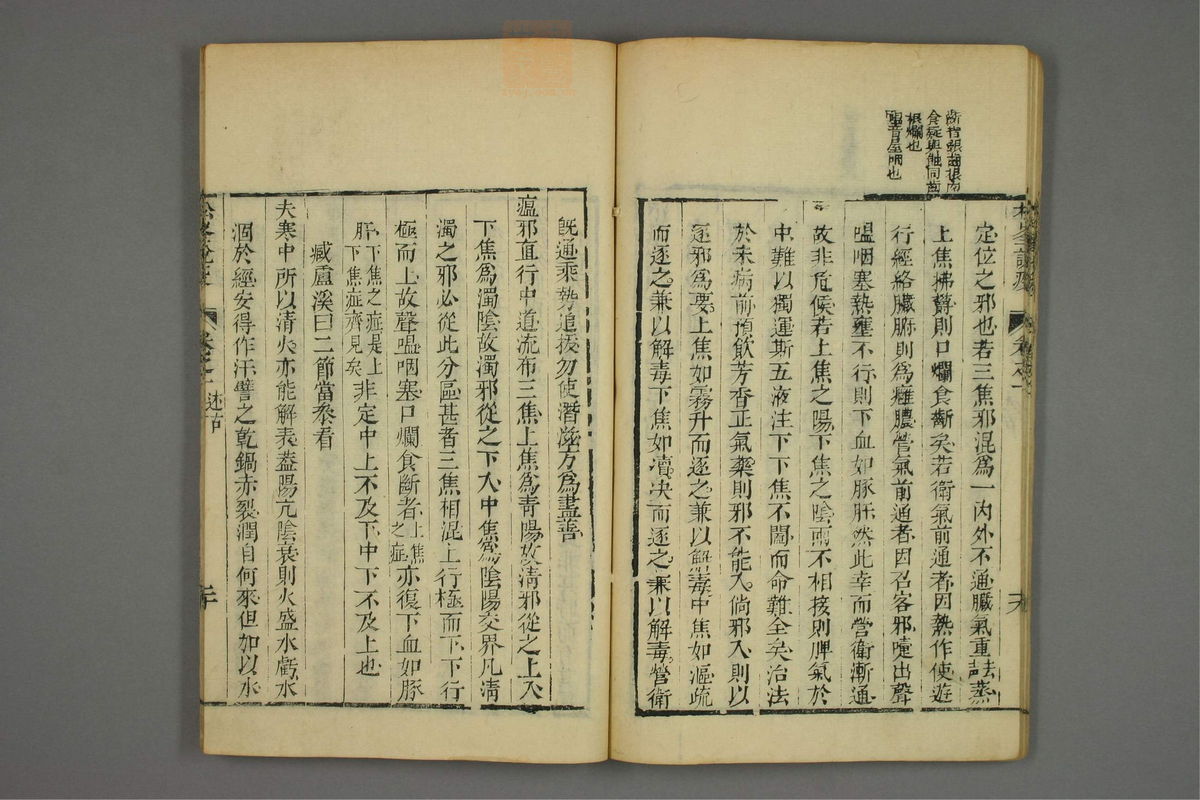 齗智銀齒根肉
食疑與蝕同齒
根爛也
嗢音屋咽也
定位之邪也若三焦邪混爲一內外不通臟氣重蒸
上焦拂鬱則口爛食齗矣若衛氣前通者因熱作使遊
行經絡臟腑則爲癰膿營氣前通者因召客邪嚏出聲
嗢咽塞熱壅不行則下血如豚肝然此幸而營衛漸通
故非危候若上焦之陽下焦之陰兩不相接則脾氣於
中難以獨運斯五液注下下焦不闔而命難全矣治法
於未病前預飲芳香正氣藥則邪不能入倘邪入則以
逐邪爲要上焦如霧升而逐之兼以解毒中焦如漚疏
而逐之兼以解毒下焦如瀆決而逐之兼以解毒營衛
松峯說疫
卷之一
既通乘勢追拔勿使潛滋方爲盡善
瘟邪直行中道流布三焦上焦爲靑陽故淸邪從之上入
下焦爲濁陰故濁邪從之下入中焦爲陰陽交界凡淸
濁之邪必從此分區甚者三焦相混上行極而下下行
極而上故聲嗢咽塞口爛食斷者上焦之症亦復下血如豚
肝下焦之症是上下焦症齊見矣非定中上不及下中下不及上也
臧盧溪曰二節當叅看
夫寒中所以淸火亦能解表葢陽亢陰衰則火盛水虧水
涸於經安得作汗譬之乾鍋赤裂潤自何來但如以水
松峯說疫
卷之一 述古
二十